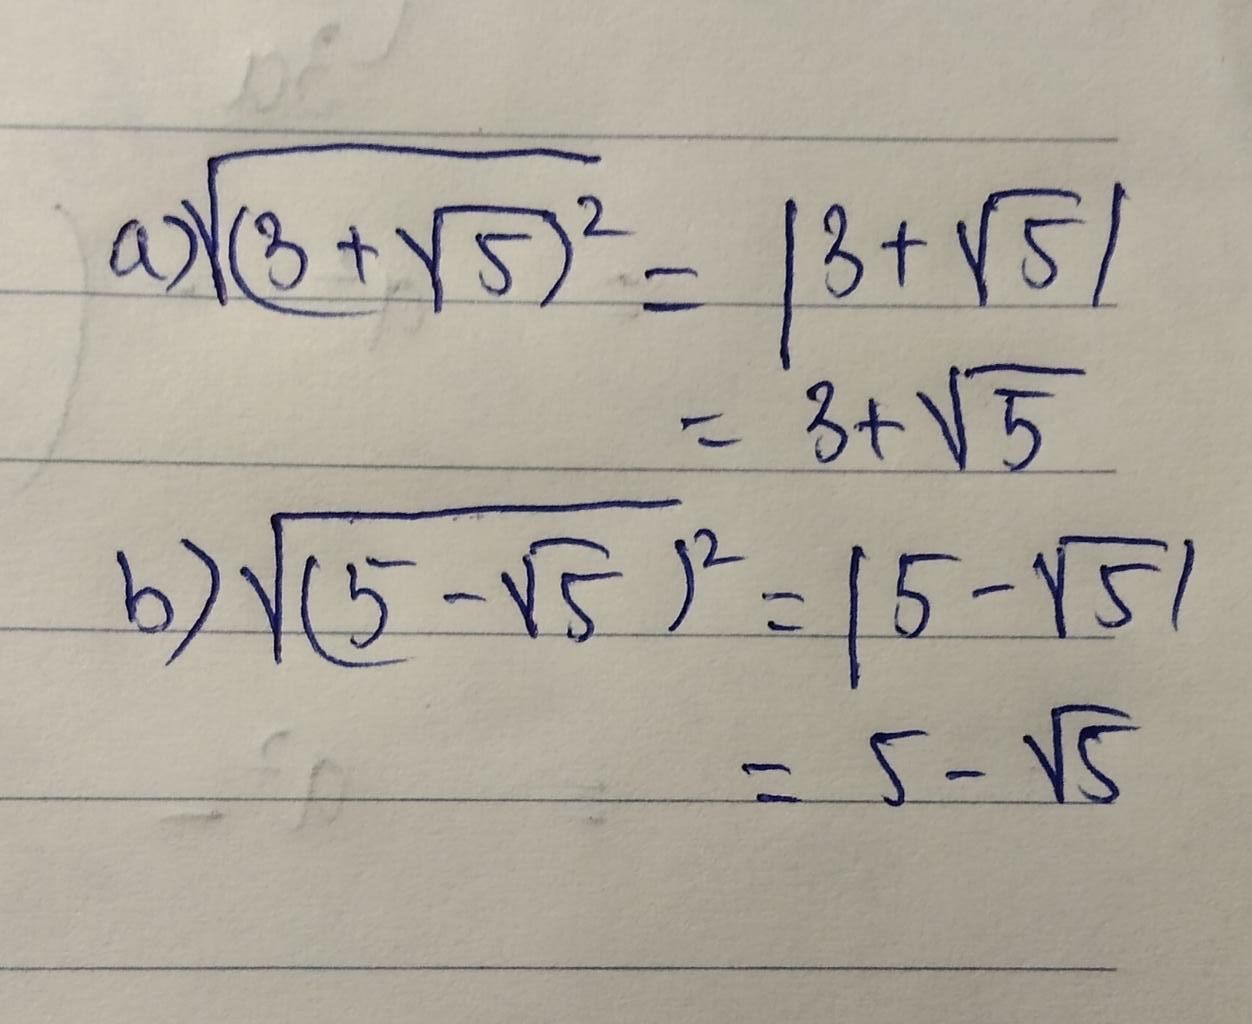 a) √(3 + √5)² = |3 + √5|
= 3 + √5
b) √(5 - √5)² = |5 - √5|
= 5 - √5